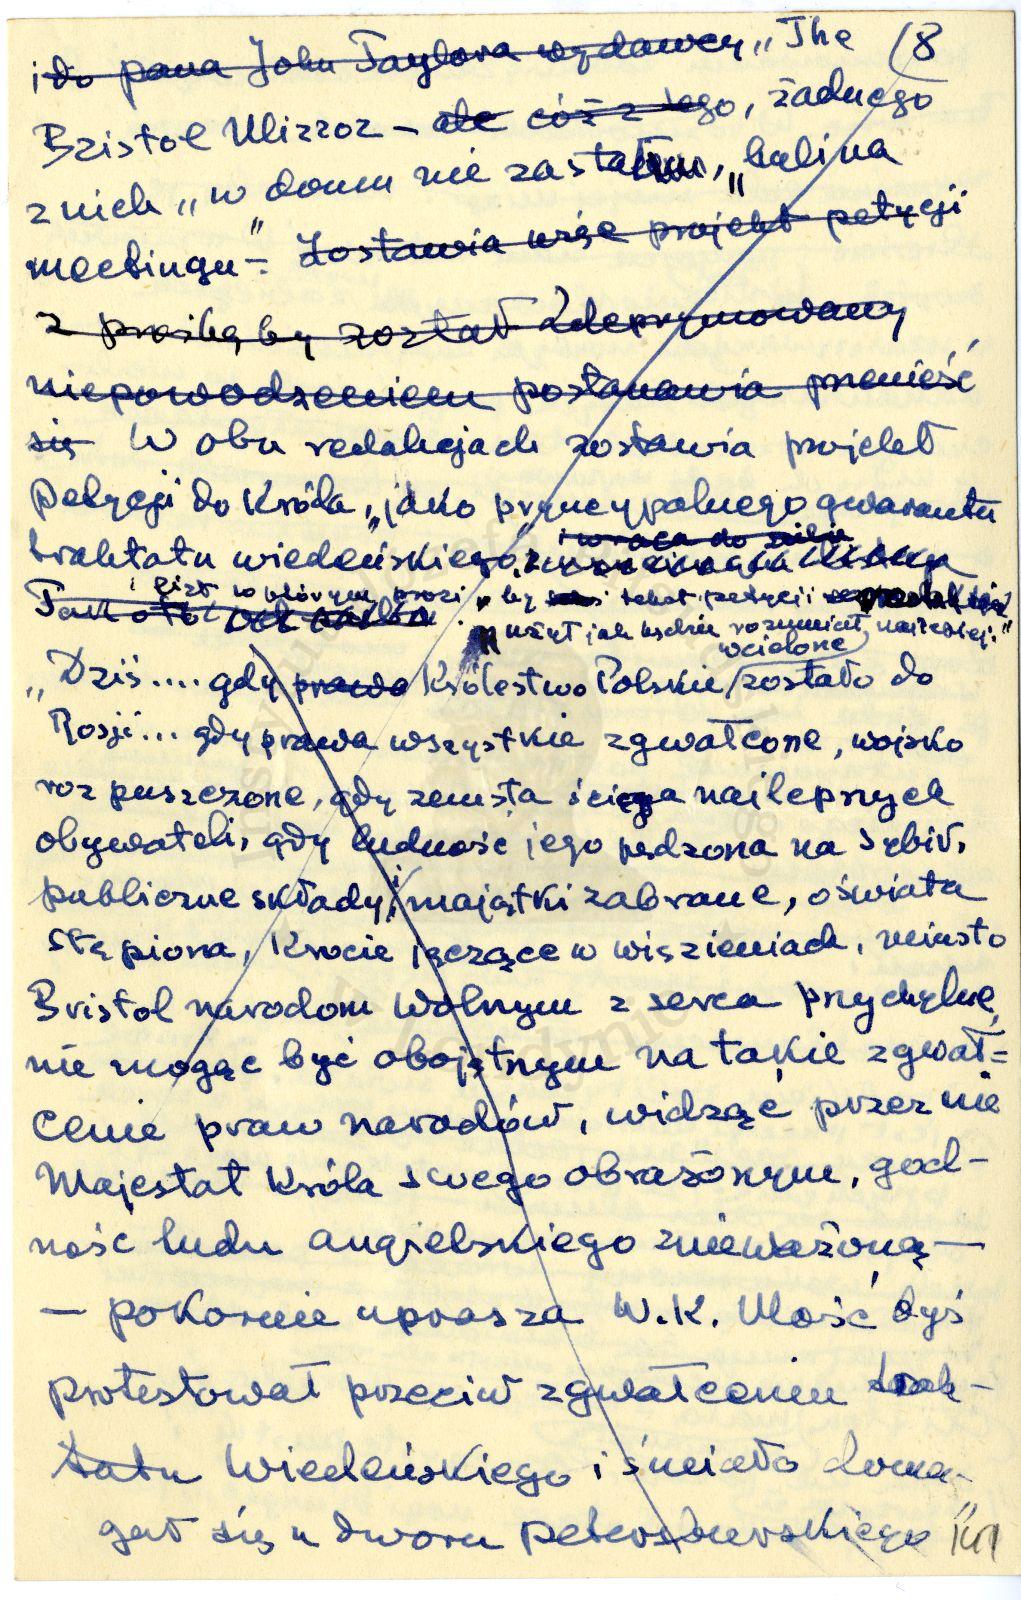 i do pana John Taylora wydawcy „The (8
Bristol Mirror – ale cóż z tego, żadnego
z nich „w domu nie zastałem, „była
meetingu" – Zostawia więc projekt petycji
z prośbą by został Zdeprymowany
niepowodzeniem postanawia przenieść
się W obu redakcjach zostawia projekt
petycji do Króla „jako pryncypalnego gwaranta
i wraca do
traktatu wiedeńskiego"
i list w którym prosi „by tekst petycji
użył jak będzie rozumiał najlepiej."
wcielone
„Dziś.... gdy prawa Królestwo Polskie zostało do
Rosji... gdy prawa wszystkie zgwałcone, wojsko
rozpuszczone, gdy zemsta ściga najlepszych
obywateli, gdy ludność jego pędzona na Sybir,
publiczne składy i majątki zabrane, oświata
stępiona, krocie jęczące w więzieniach, miasto
Bristol narodom wolnym z serca przychylne,
nie mogąc być obojętnym na takie zgwał=
cenie praw narodów, widząc przez nie
Majestat Króla swego obrażonym, god–
ność ludu angielskiego znieważoną –
– pokornie uprasza W.K. Mość byś
protestował przeciw zgwałceniu trak–
tatu Wiedeńskiego i śmiało doma–
gał się u dworu petersburskiego"